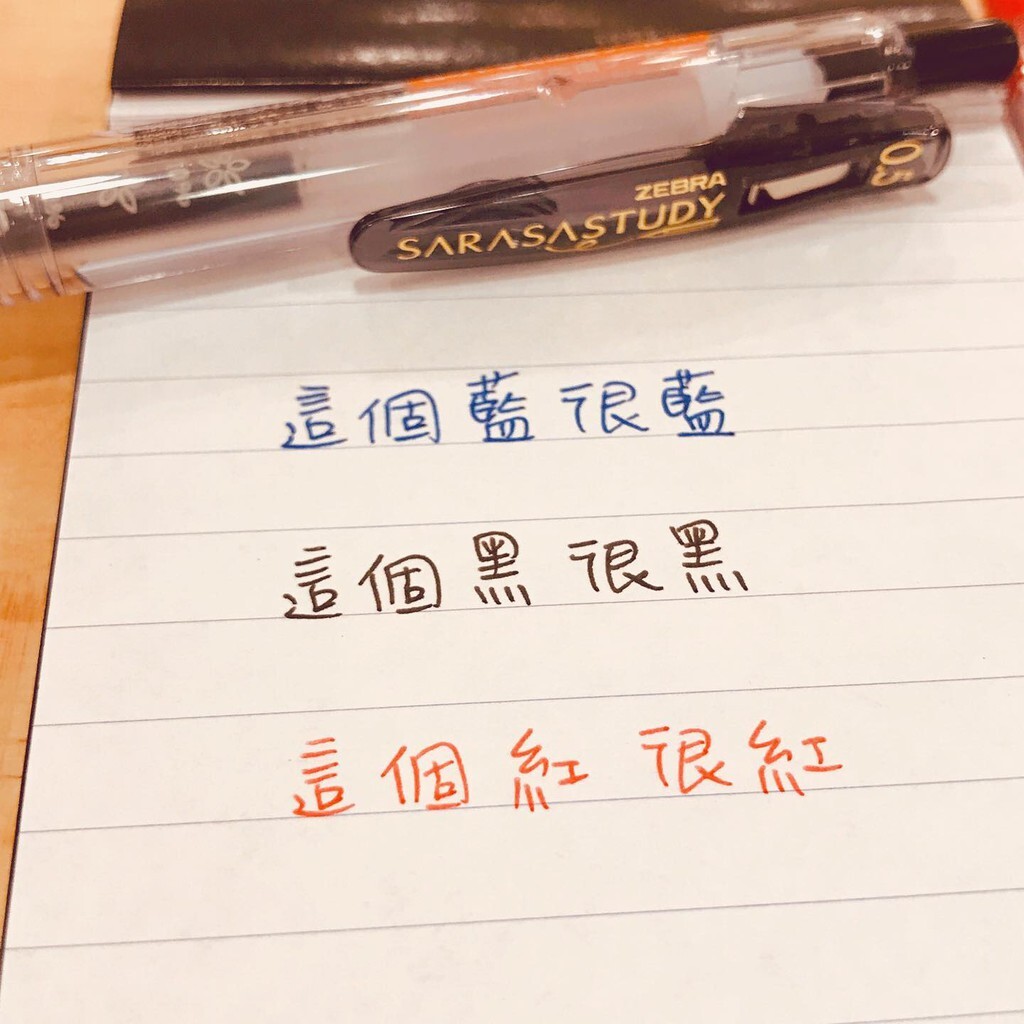 ZEBRA
SARASASTUDY
0.5
這個藍很藍
這個黑很黑
這個紅很紅